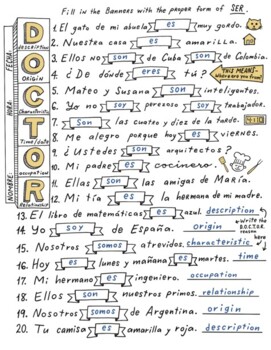 Fill in the Banners with the proper form of SER.
1. El gato de mi abuela es muy gordo.
2. Nuestra casa es amarilla.
3. Ellos no son de Cuba son de Colombia.
4. ¿De dónde eres tú?
THIS MEANS-
Where are you from?
5. Mateo y Susana son inteligentes.
6. Yo no soy perezoso soy trabajador.
7. Son las cuatro y diez de la tarde. 4:10
8. Me alegro porque hoy es viernes.
9. ¿Ustedes son arquitectos?
10. Mi padre es cocinero.
11. Ellas son las amigas de María.
12. Mi tía es la hermana de mi madre.
13. El libro de matemáticas es azul. description
Write the
D.O.C.T.O.R.
reason
here
14. Yo soy de España. origin
15. Nosotros somos atrevidos. characteristic
16. Hoy es lunes y mañana es martes. time
17. Mi hermano es ingeniero. occupation
18. Ellos son nuestros primos. relationship
19. Nosotros somos de Argentina. origin
20. Tu camisa es amarilla y roja. description
FECHA:
HORA:
NOMBRE:
D
description
O
Origin
C
Characteristic
T
Time/date
O
occupation
R
Relationship